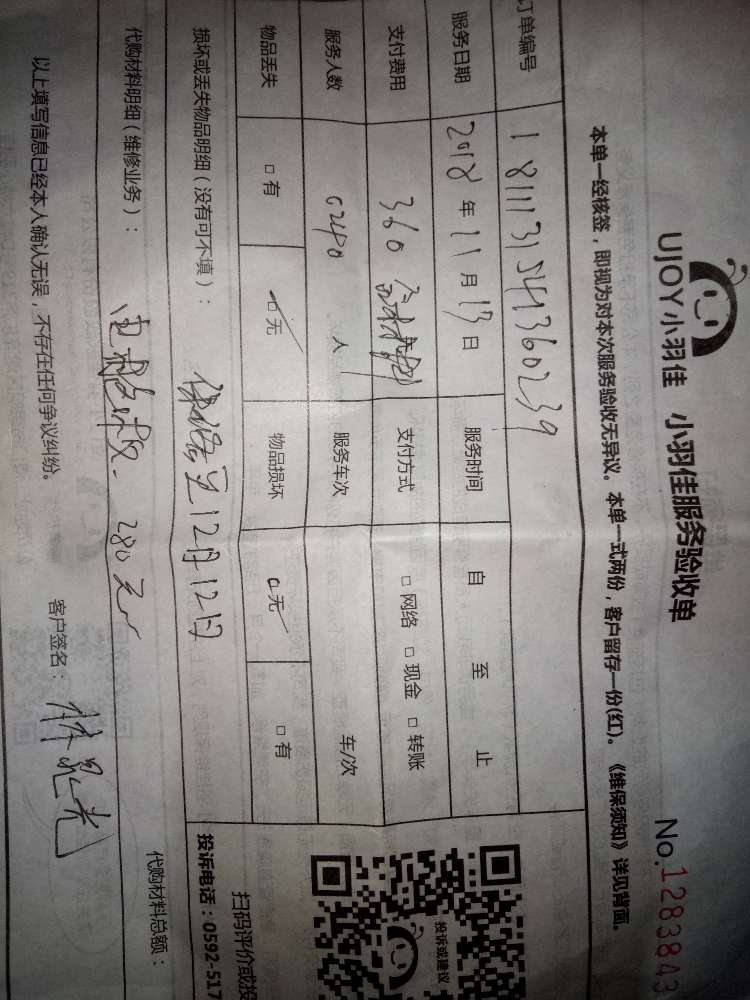 UJOY小羽佳 小羽佳服务验收单
No.1283843
本单一经核签，即视为对本次服务验收无异议。本单一式两份，客户留存一份(红)。《维保须知》详见背面。
订单编号 1811131541360239
服务日期 2018年11月13日 服务时间 自 至 止
支付费用 360 支付方式 □网络 □现金 □转账
服务人数 0240 人 服务车次 车/次
物品丢失 □有 □无 物品损坏 □无 □有
损坏或丢失物品明细（没有可不填）： 保洁至12月12日
代购材料明细（维修业务）： 280元
代购材料总额：
以上填写信息已经本人确认无误，不存在任何争议纠纷。 客户签名：
投诉或建议
扫码评价或投
投诉电话：0592-517